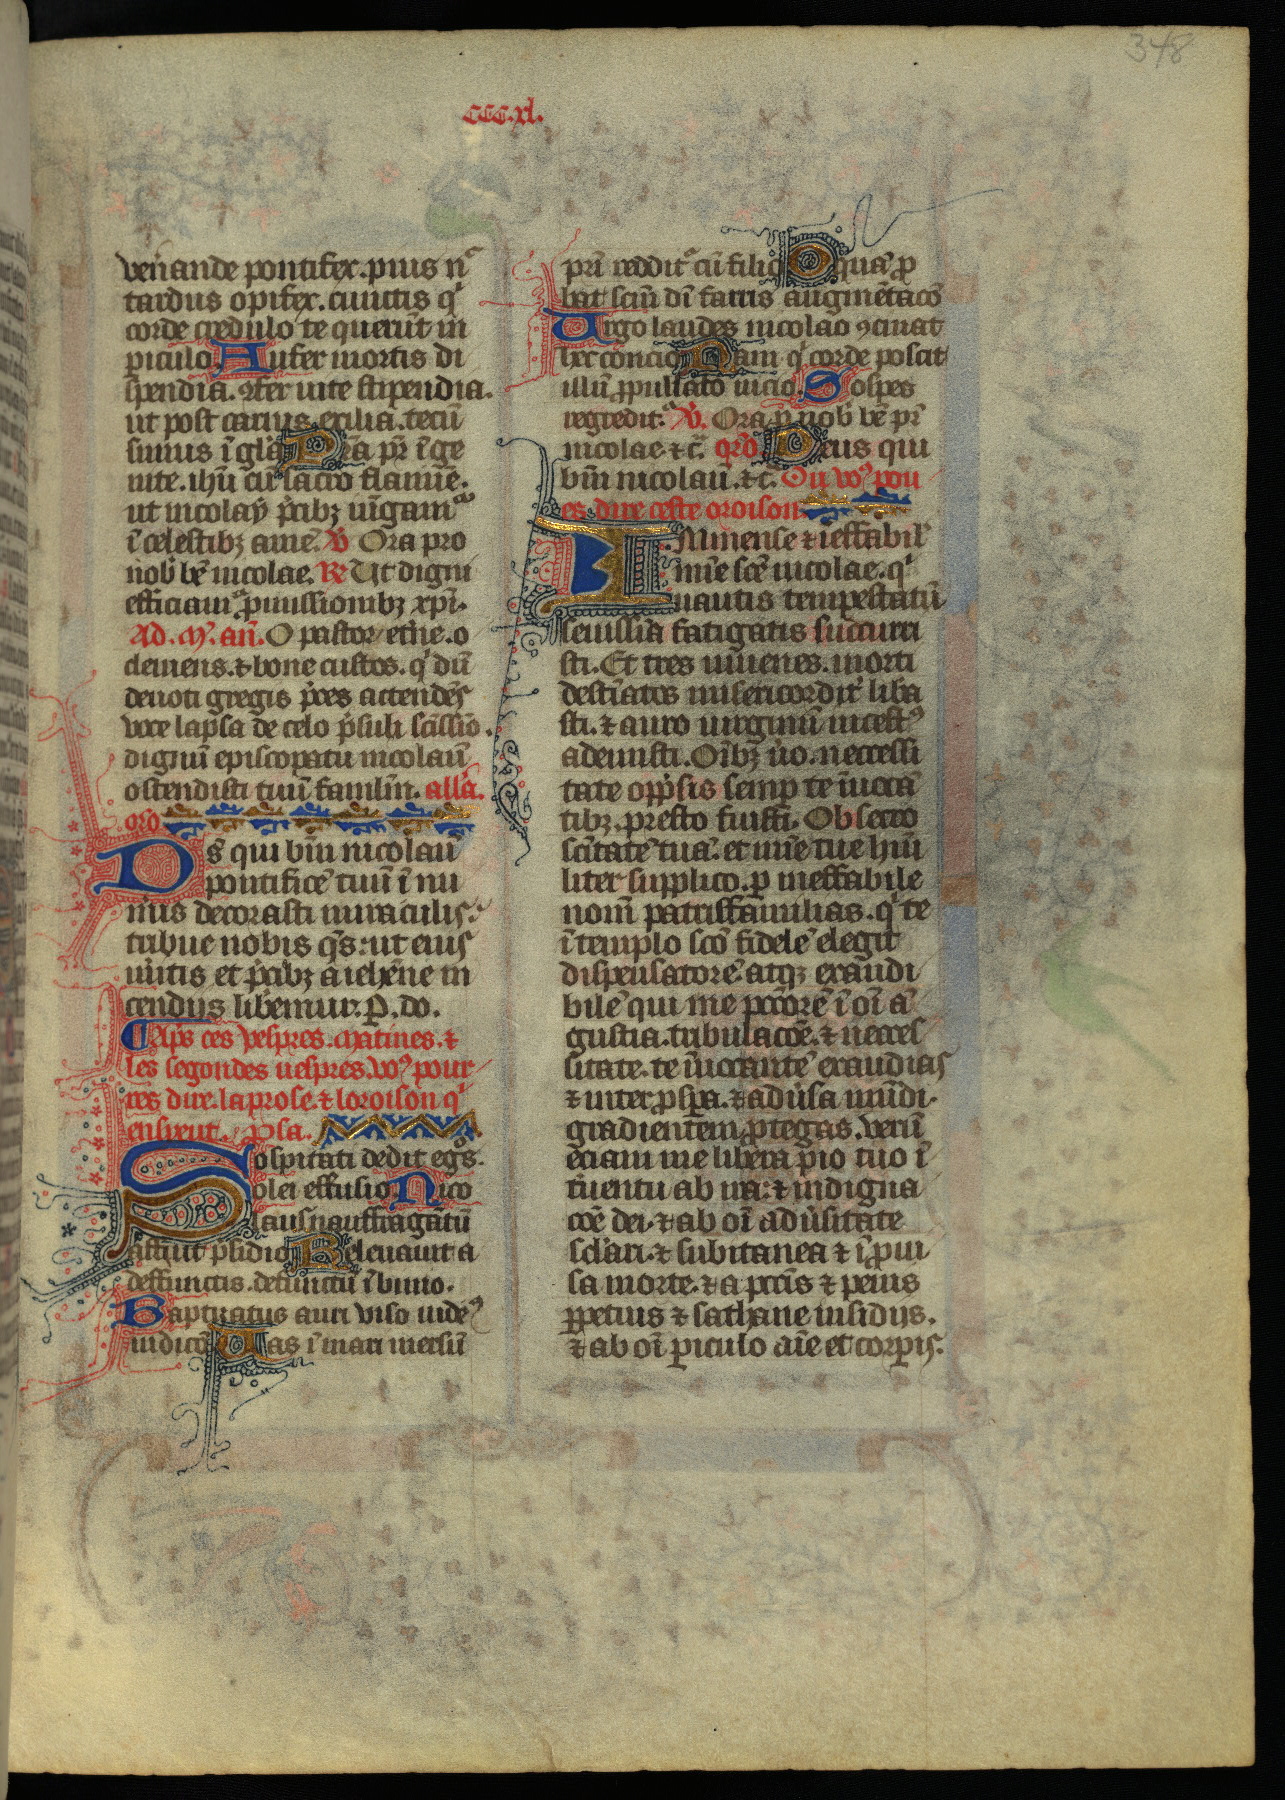 348
CCC.xl.
venande pontifex. pius nͣ
tardus opifex. cunctis qͥ
corde credulo te querūt in
piculo. Aufer mortis di
spendia. ɔfer vite stipendia.
ut post carnis exilia. tecū
simus ī glīa. Nr̄a pr̄ īge
nite. ihū cū sacro flamīe.
ut nicolay p̄cibꝫ
ī celestibꝫ amē. V̄ Ora pro
nob̄ bē nicolae. R̄ Ut digni
efficiamͬ pmissionibꝫ xp̄i.
Ad. m̄. añ. O pastor et̄ne. o
clemens. ⁊ bone custos. qͥ dū
devoti gregis p̄ces attendēs
voce lapsa de celo p̄suli sc̄issīo.
dignū episcopatu nicolaū
ostendisti tuū famlm̄. all̄a.
oro
Ds̄ qui bīm nicolaū
pontificē tuū ī nu
mͥis decorasti miraculis:
tribue nobis q̄s: ut eius
mͥitis et p̄cibꝫ a iehēne in
cendijs libemur. P. do.
Ap̄s ces vespres. matines. ⁊
les segondes vespres. voꝰ pour
res dire. la prose. ⁊ loroison qͥ
ensivent. psa.
Sospitati dedit eg̊s.
olei effusio. Nico
laus naufragātū
affuit p̄sidio. Relevavit a
deffunctis. defunctū ī bivio.
Baptizatus auri viso iudeꝰ
indicō. Vas ī mari mersū
pr̄i redditͬ cū filio. O quā ꝓ
bat sc̄m dī farris augmētacō
Ergo laudes nicolao ɔcinat
hec concio. Nam qͥ corde poscit
illū ꝓpulsato vicio. Sospes
regreditͬ. V̄. Ora p nob̄ bē pr̄
nicolae ⁊ c̄. oro Deus qui
bīm nicolaū. ⁊c. Ou voꝰ pou
es dire ceste oroison
Inmense ⁊ ieffabil̄
mīe sc̄e nicolae. qͥ
nautis tempestatū
sevissīa fatigatis succurri
sti. Et tres iuvenes. morti
destīatos misericordit̄ liba
sti. ⁊ auro virginū incestꝰ
ademisti. Oībꝫ v̄o. neccessi
tate opp̄sis semp te īvocā
tibꝫ. presto fuisti. Obsecro
sc̄itatē tuā. et mīe tue hūi
liter supplico. p ineffabile
nom̄ patrisfamilias. qͥ te
ī templo sc̄o fidelē elegit
dispensatorē atqꝫ exaudi
bilē qui me pc̄corē ī oī ā
gustia. tribulacōe. ⁊ necces
sitate. te īvocantē exaudias
⁊ inter ꝓspa. ⁊ adv̄sa mūdi.
gradientem ꝓtegas. verū
eciam me libera pio tuo ī
tuentu ab ira: ⁊ indigna
cōe dei. ⁊ ab oī adv̄sitate
sclāri. ⁊ subitanea ⁊ īꝓvi
sa morte. ⁊ a pccīs ⁊ penis
ppetuis ⁊ sathane insidijs.
⁊ ab oī piculo aīe et corpis.